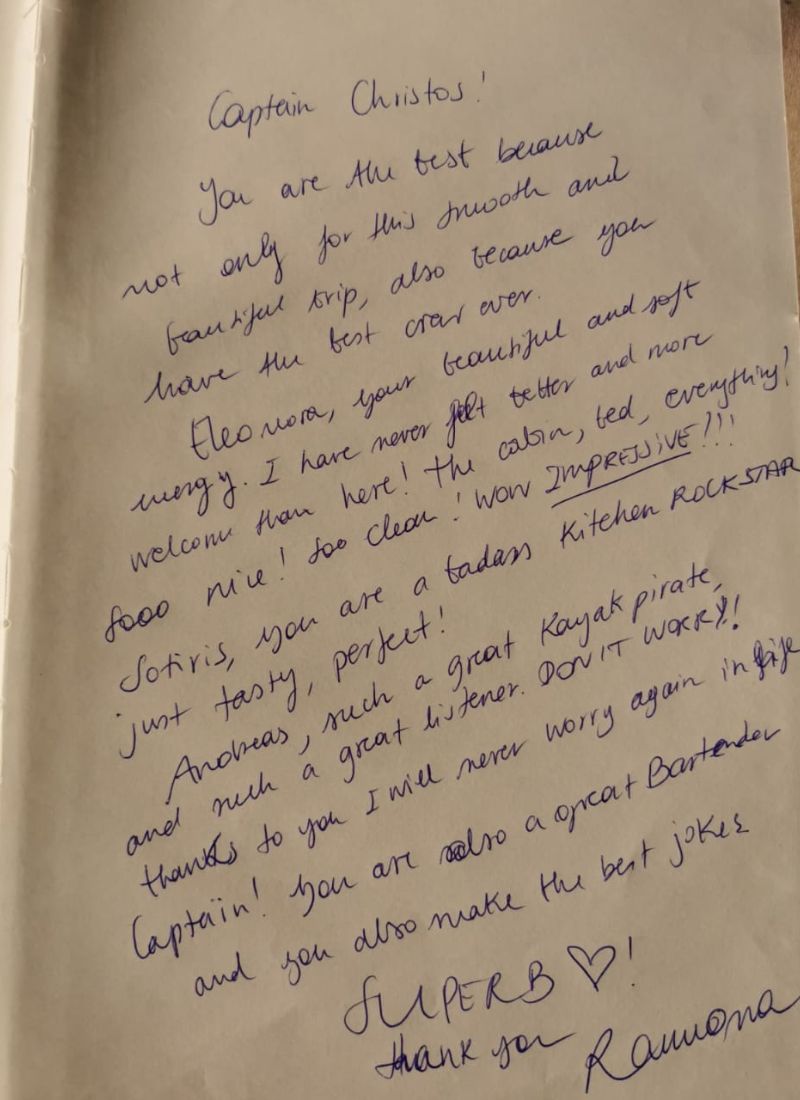 Captain Christos!
You are the best because
not only for this smooth and
beautiful trip, also because you
have the best crew ever.
Eleonora, your beautiful and soft
energy. I have never felt better and more
welcome than here! The cabin, bed, everything!
sooo nice! soo clean! WOW IMPRESSIVE!!!
Sotiris, you are a badass Kitchen ROCKSTAR
just tasty, perfect!
Andreas, such a great Kayak pirate,
and such a great listener. DON'T WORRY!!
thanks to you I will never worry again in life
Captain! You are also a great Bartender
and you also make the best jokes
SUPERB ♡!
thank you Ramona